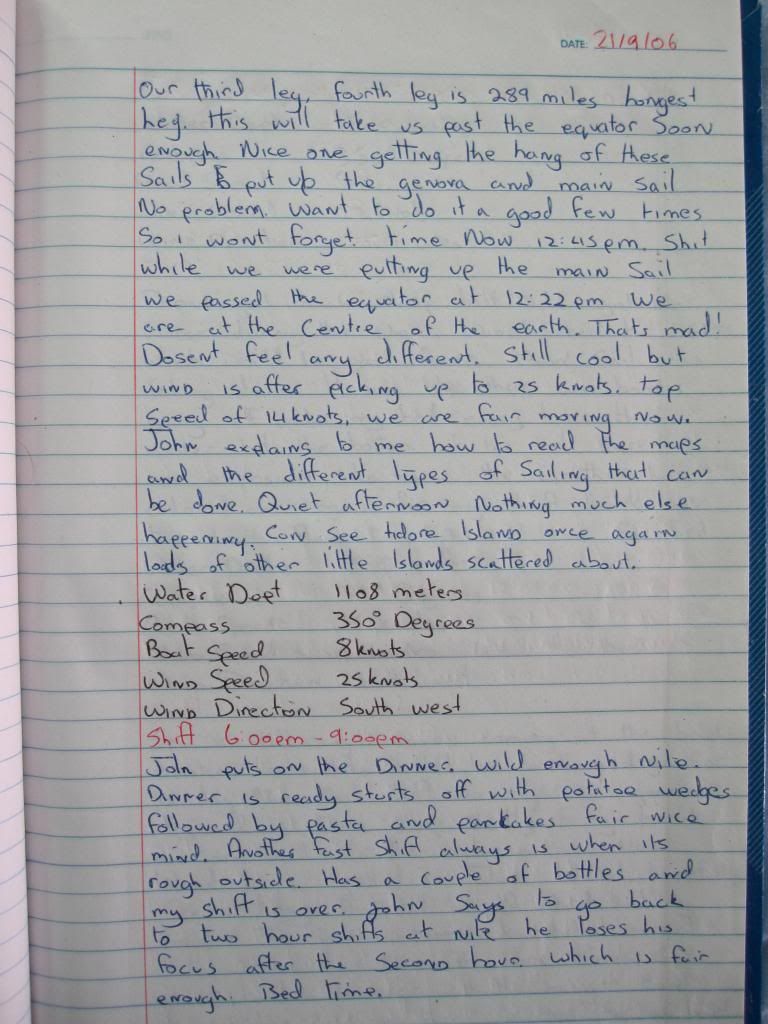 DATE: 21/9/06
Our third leg, fourth leg is 289 miles longest
Leg. This will take us past the equator Soon
enough. Nice one getting the hang of these
Sails to put up the genova and main Sail
No problem. Want to do it a good few times
So i wont forget. time Now 12:45pm. Shit
while we were putting up the main Sail
we passed the equator at 12:22pm We
are at the Centre of the earth. Thats mad!
Dosent feel any different. Still cool but
WIND is after picking up to 25 knots. top
Speed of 14knots, we are fair moving now.
John explains to me how to read the maps
and the different types of Sailing that can
be done. Quiet afternoon Nothing much else
happening. Can See tidore Island once again
loads of other little Islands scattered about.
Water Dept 1108 meters
Compass 350° Degrees
Boat Speed 8knots
WIND Speed 25knots
WIND Direction South west
Shift 6:00pm - 9:00pm
John puts on the Dinner. wild enough nite.
Dinner is ready starts off with potatoe wedges
followed by pasta and pankakes fair nice
mind. Another fast Shift always is when its
rough outside. Has a couple of bottles and
my shift is over. John Says to go back
to two hour shifts at nite he loses his
focus after the Second hour. which is fair
enough. Bed Time.